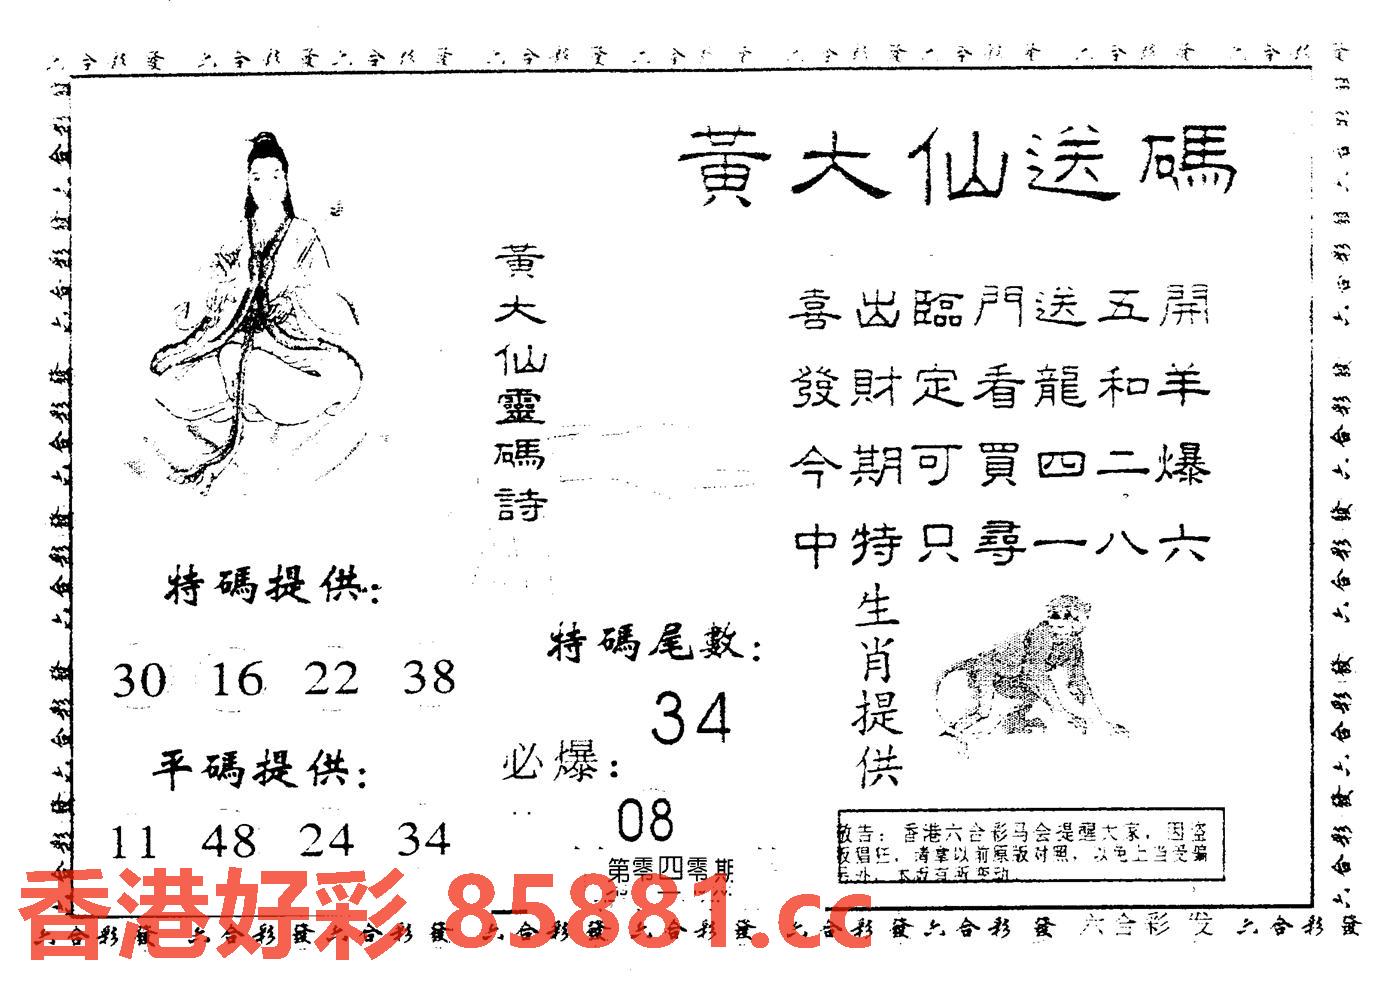 六合彩發 六合彩發 六合彩發 六合彩發 六合彩發 六合彩發 六合彩發 六合彩發 六合彩發
黃大仙送碼
黃大仙靈碼詩
喜出臨門送五開
發財定看龍和羊
今期可買四二爆
中特只尋一八六
特碼提供：
30 16 22 38
平碼提供：
11 48 24 34
特碼尾數：
34
必爆：
08
第零四零期
生肖提供
敬告：香港六合彩马会提醒大家，因盗
版猖狂，请拿以前原版对照，以免上当受骗
香港好彩 85881.cc
六合彩發 六合彩發 六合彩發 六合彩發 六合彩發 六合彩發 六合彩發 六合彩发 六合彩發